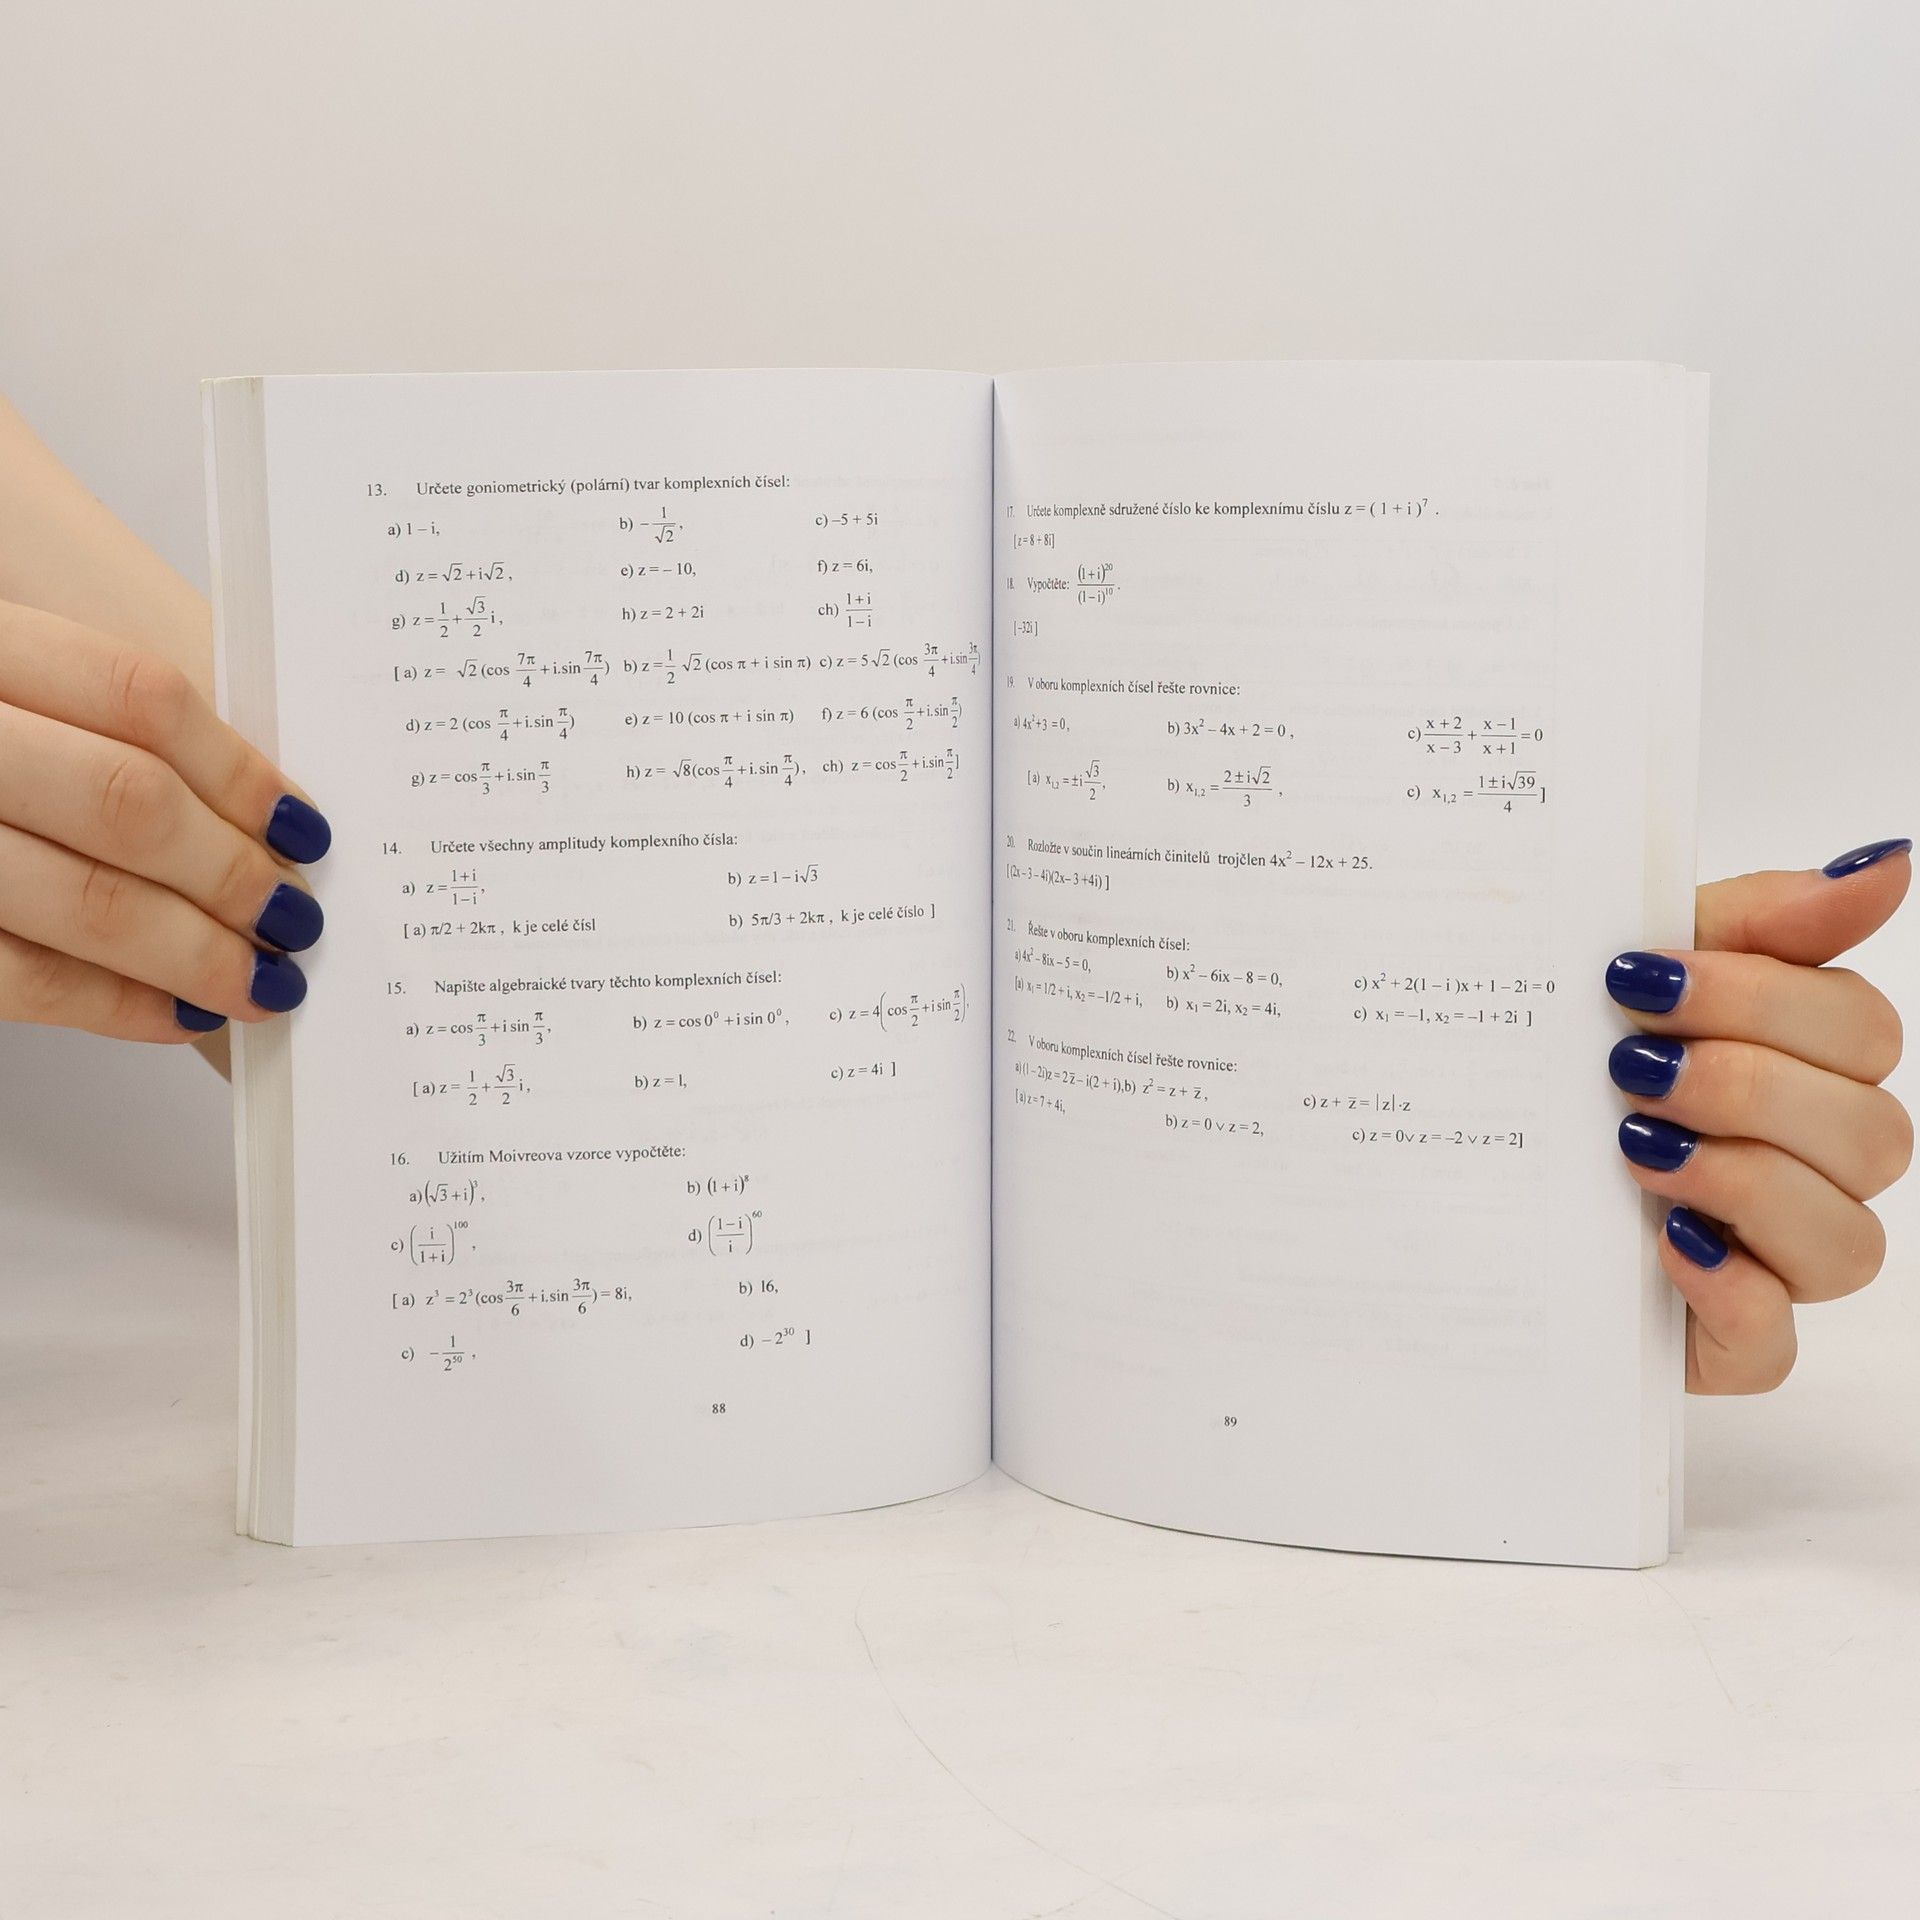 13. Určete goniometrický (polární) tvar komplexních čísel:
a) 1 – i, b) –1/√2, c) –5 + 5i
d) z = √2 + i√2, e) z = – 10, f) z = 6i,
g) z = 1/2 + √3/2 i, h) z = 2 + 2i ch) 1+i/1–i
[ a) z = √2 (cos 7π/4 + i.sin 7π/4) b) z = 1/2 √2 (cos π + i sin π) c) z = 5√2 (cos 3π/4 + i.sin 3π/4)
d) z = 2 (cos π/4 + i.sin π/4) e) z = 10 (cos π + i sin π) f) z = 6 (cos π/2 + i.sin π/2)
g) z = cos π/3 + i.sin π/3 h) z = √8(cos π/4 + i.sin π/4), ch) z = cos π/2 + i.sin π/2]
14. Určete všechny amplitudy komplexního čísla:
a) z = 1+i/1–i, b) z = 1 – i√3
[ a) π/2 + 2kπ , k je celé čísl b) 5π/3 + 2kπ , k je celé číslo ]
15. Napište algebraické tvary těchto komplexních čísel:
a) z = cos π/3 + i sin π/3, b) z = cos 0⁰ + i sin 0⁰, c) z = 4(cos π/2 + i sin π/2),
[ a) z = 1/2 + √3/2 i, b) z = 1, c) z = 4i ]
16. Užitím Moivreova vzorce vypočtěte:
a) (√3 + i)³, b) (1 + i)⁸
c) (i/1+i)¹⁰⁰, d) (1–i/i)⁶⁰
[ a) z³ = 2³(cos 3π/6 + i.sin 3π/6) = 8i, b) 16,
c) –1/2⁵⁰, d) – 2³⁰ ]
88
17. Určete komplexně sdružené číslo ke komplexnímu číslu z = ( 1 + i )⁷ .
[z = 8 + 8i]
18. Vypočtěte: (1+i)²⁰/(1–i)¹⁰.
[–32i ]
19. V oboru komplexních čísel řešte rovnice:
a) 4x²+3 =0, b) 3x² – 4x + 2 = 0 , c) x+2/x–3 + x–1/x+1 = 0
[a) x₁,₂ = ±i √3/2, b) x₁,₂ = 2±i√2/3 , c) x₁,₂ = 1±i√39/4 ]
20. Rozložte v součin lineárních činitelů trojčlen 4x² – 12x + 25.
[(2x – 3 – 4i)(2x – 3 +4i) ]
21. Řešte v oboru komplexních čísel:
a) 4x² – 8ix – 5 = 0, b) x² – 6ix – 8 = 0, c) x² + 2(1 – i )x + 1 – 2i = 0
[a) x₁ = 1/2 + i, x₂ = –1/2 + i, b) x₁ = 2i, x₂ = 4i, c) x₁ = –1, x₂ = –1 + 2i ]
22. V oboru komplexních čísel řešte rovnice:
a) (1 – 2i)z = 2z̅ – i(2 + i), b) z² = z + z̅ , c) z + z̅ = |z|·z
[a) z = 7 + 4i, b) z = 0 ∨ z = 2, c) z = 0∨ z = –2 ∨ z = 2]
89